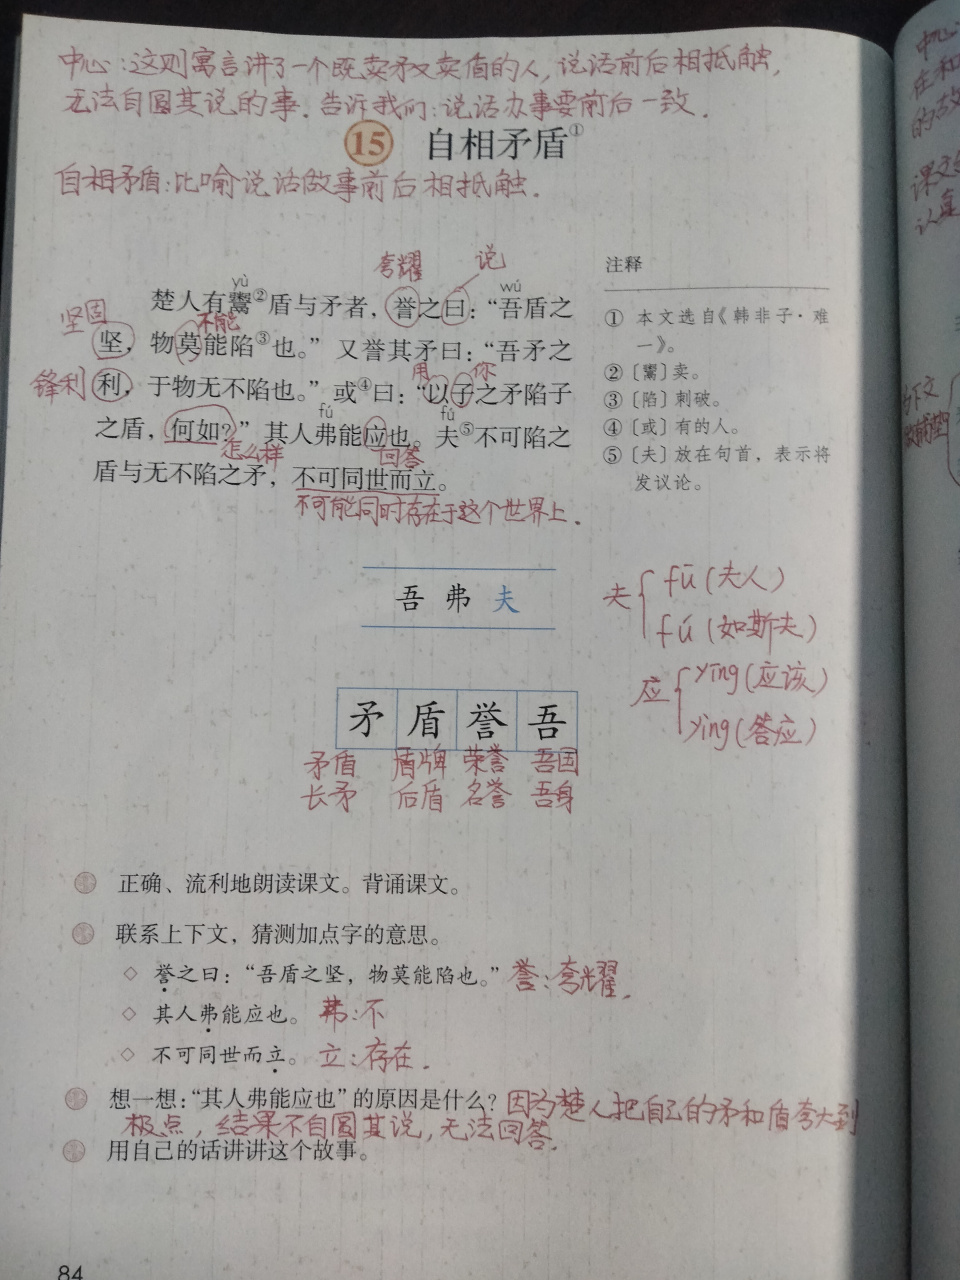 中心：这则寓言讲了一个既卖矛又卖盾的人，说话前后相抵触，
无法自圆其说的事．告诉我们：说话办事要前后一致．
15 自相矛盾①
自相矛盾：比喻说话做事前后相抵触．
夸耀 说
yù wú
楚人有鬻②盾与矛者，誉之曰：“吾盾之
坚固 不能
坚，物莫能陷③也。”又誉其矛曰：“吾矛之
用 你
锋利 利，于物无不陷也。”或④曰：“以子之矛陷子
fú fú
之盾，何如？”其人弗能应也。夫⑤不可陷之
怎么样 回答
盾与无不陷之矛，不可同世而立。
不可能同时存在于这个世界上．
注释
① 本文选自《韩非子·难
一》。
② 〔鬻〕卖。
③ 〔陷〕刺破。
④ 〔或〕有的人。
⑤ 〔夫〕放在句首，表示将
发议论。
吾 弗 夫
夫 fū（夫人）
fú（如斯夫）
应 yīng（应该）
yìng（答应）
矛 盾 誉 吾
矛盾 盾牌 荣誉 吾国
长矛 后盾 名誉 吾身
正确、流利地朗读课文。背诵课文。
联系上下文，猜测加点字的意思。
◇ 誉之曰：“吾盾之坚，物莫能陷也。” 誉：夸耀．
◇ 其人弗能应也。 弗：不
◇ 不可同世而立。 立：存在．
想一想：“其人弗能应也”的原因是什么？因为楚人把自己的矛和盾夸大到
极点，结果不自圆其说，无法回答．
用自己的话讲讲这个故事。
84
中心
在和
的故
课文
认真
下文